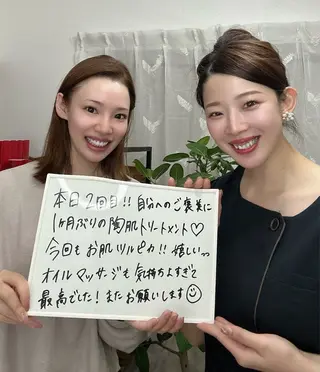 本日2回目!! 自分へのご褒美に
1ヶ月ぶりの陶肌トリートメント♡
今回もお肌ツルピカ!! 嬉しいっ
オイルマッサージも気持ちよすぎて
最高でした! またお願いします☺